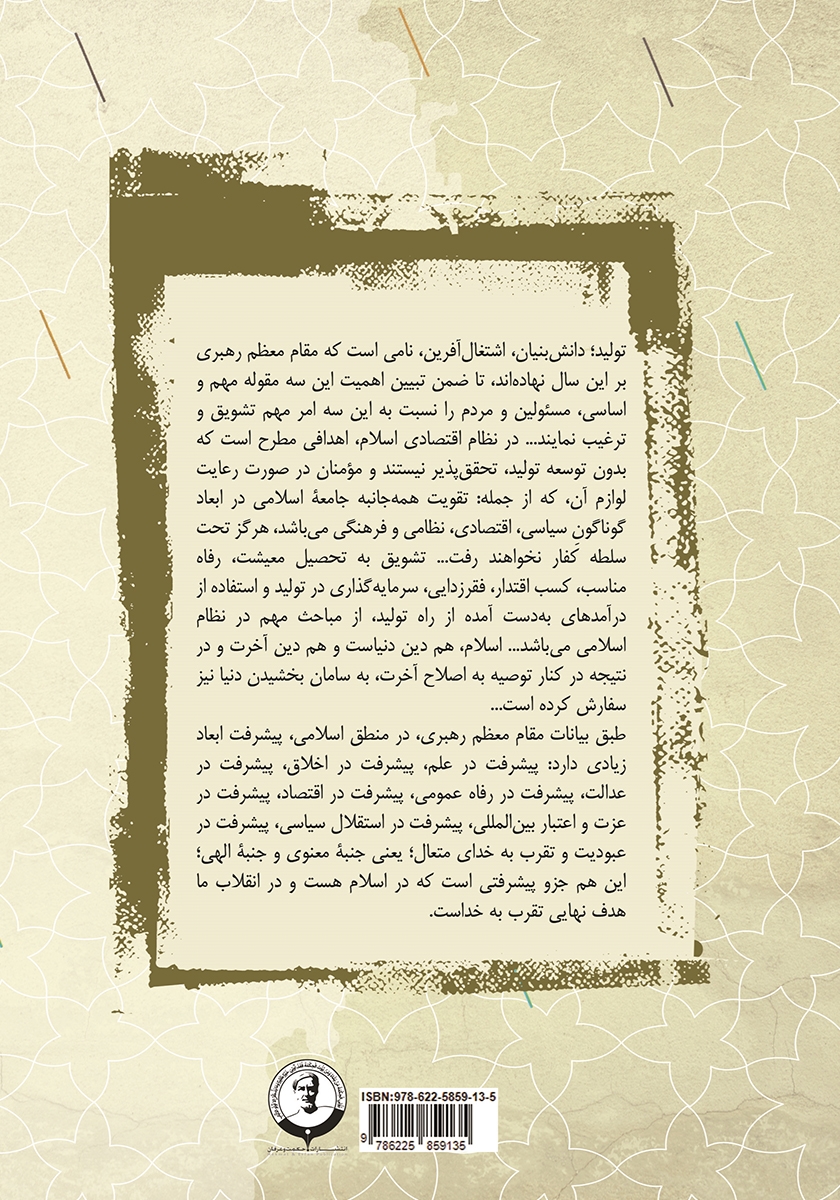 تولید؛ دانش‌بنیان، اشتغال‌آفرین، نامی است که مقام معظم رهبری
بر این سال نهاده‌اند، تا ضمن تبیین اهمیت این سه مقوله مهم و
اساسی، مسئولین و مردم را نسبت به این سه امر مهم تشویق و
ترغیب نمایند... در نظام اقتصادی اسلام، اهدافی مطرح است که
بدون توسعه تولید، تحقق‌پذیر نیستند و مؤمنان در صورت رعایت
لوازم آن، که از جمله: تقویت همه‌جانبه جامعهٔ اسلامی در ابعاد
گوناگونِ سیاسی، اقتصادی، نظامی و فرهنگی می‌باشد، هرگز تحت
سلطه کفار نخواهند رفت... تشویق به تحصیل معیشت، رفاه
مناسب، کسب اقتدار، فقرزدایی، سرمایه‌گذاری در تولید و استفاده از
درآمدهای به‌دست آمده از راه تولید، از مباحث مهم در نظام
اسلامی می‌باشد... اسلام، هم دین دنیاست و هم دین آخرت و در
نتیجه در کنار توصیه به اصلاح آخرت، به سامان بخشیدن دنیا نیز
سفارش کرده است...
طبق بیانات مقام معظم رهبری، در منطق اسلامی، پیشرفت ابعاد
زیادی دارد: پیشرفت در علم، پیشرفت در اخلاق، پیشرفت در
عدالت، پیشرفت در رفاه عمومی، پیشرفت در اقتصاد، پیشرفت در
عزت و اعتبار بین‌المللی، پیشرفت در استقلال سیاسی، پیشرفت در
عبودیت و تقرب به خدای متعال؛ یعنی جنبهٔ معنوی و جنبهٔ الهی؛
این هم جزو پیشرفتی است که در اسلام هست و در انقلاب ما
هدف نهایی تقرب به خداست.
ISBN:978-622-5859-13-5
9 786225 859135
انتشارات حکمت و عرفان